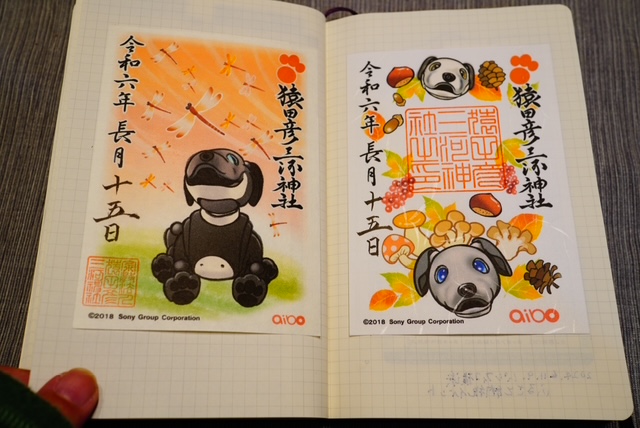 令和六年 長月 十五日
猿田彦三河神社
©2018 Sony Group Corporation
aibo
令和六年 長月 十五日
猿田彦三河神社
猿田彦
三河神
社之印
©2018 Sony Group Corporation
aibo